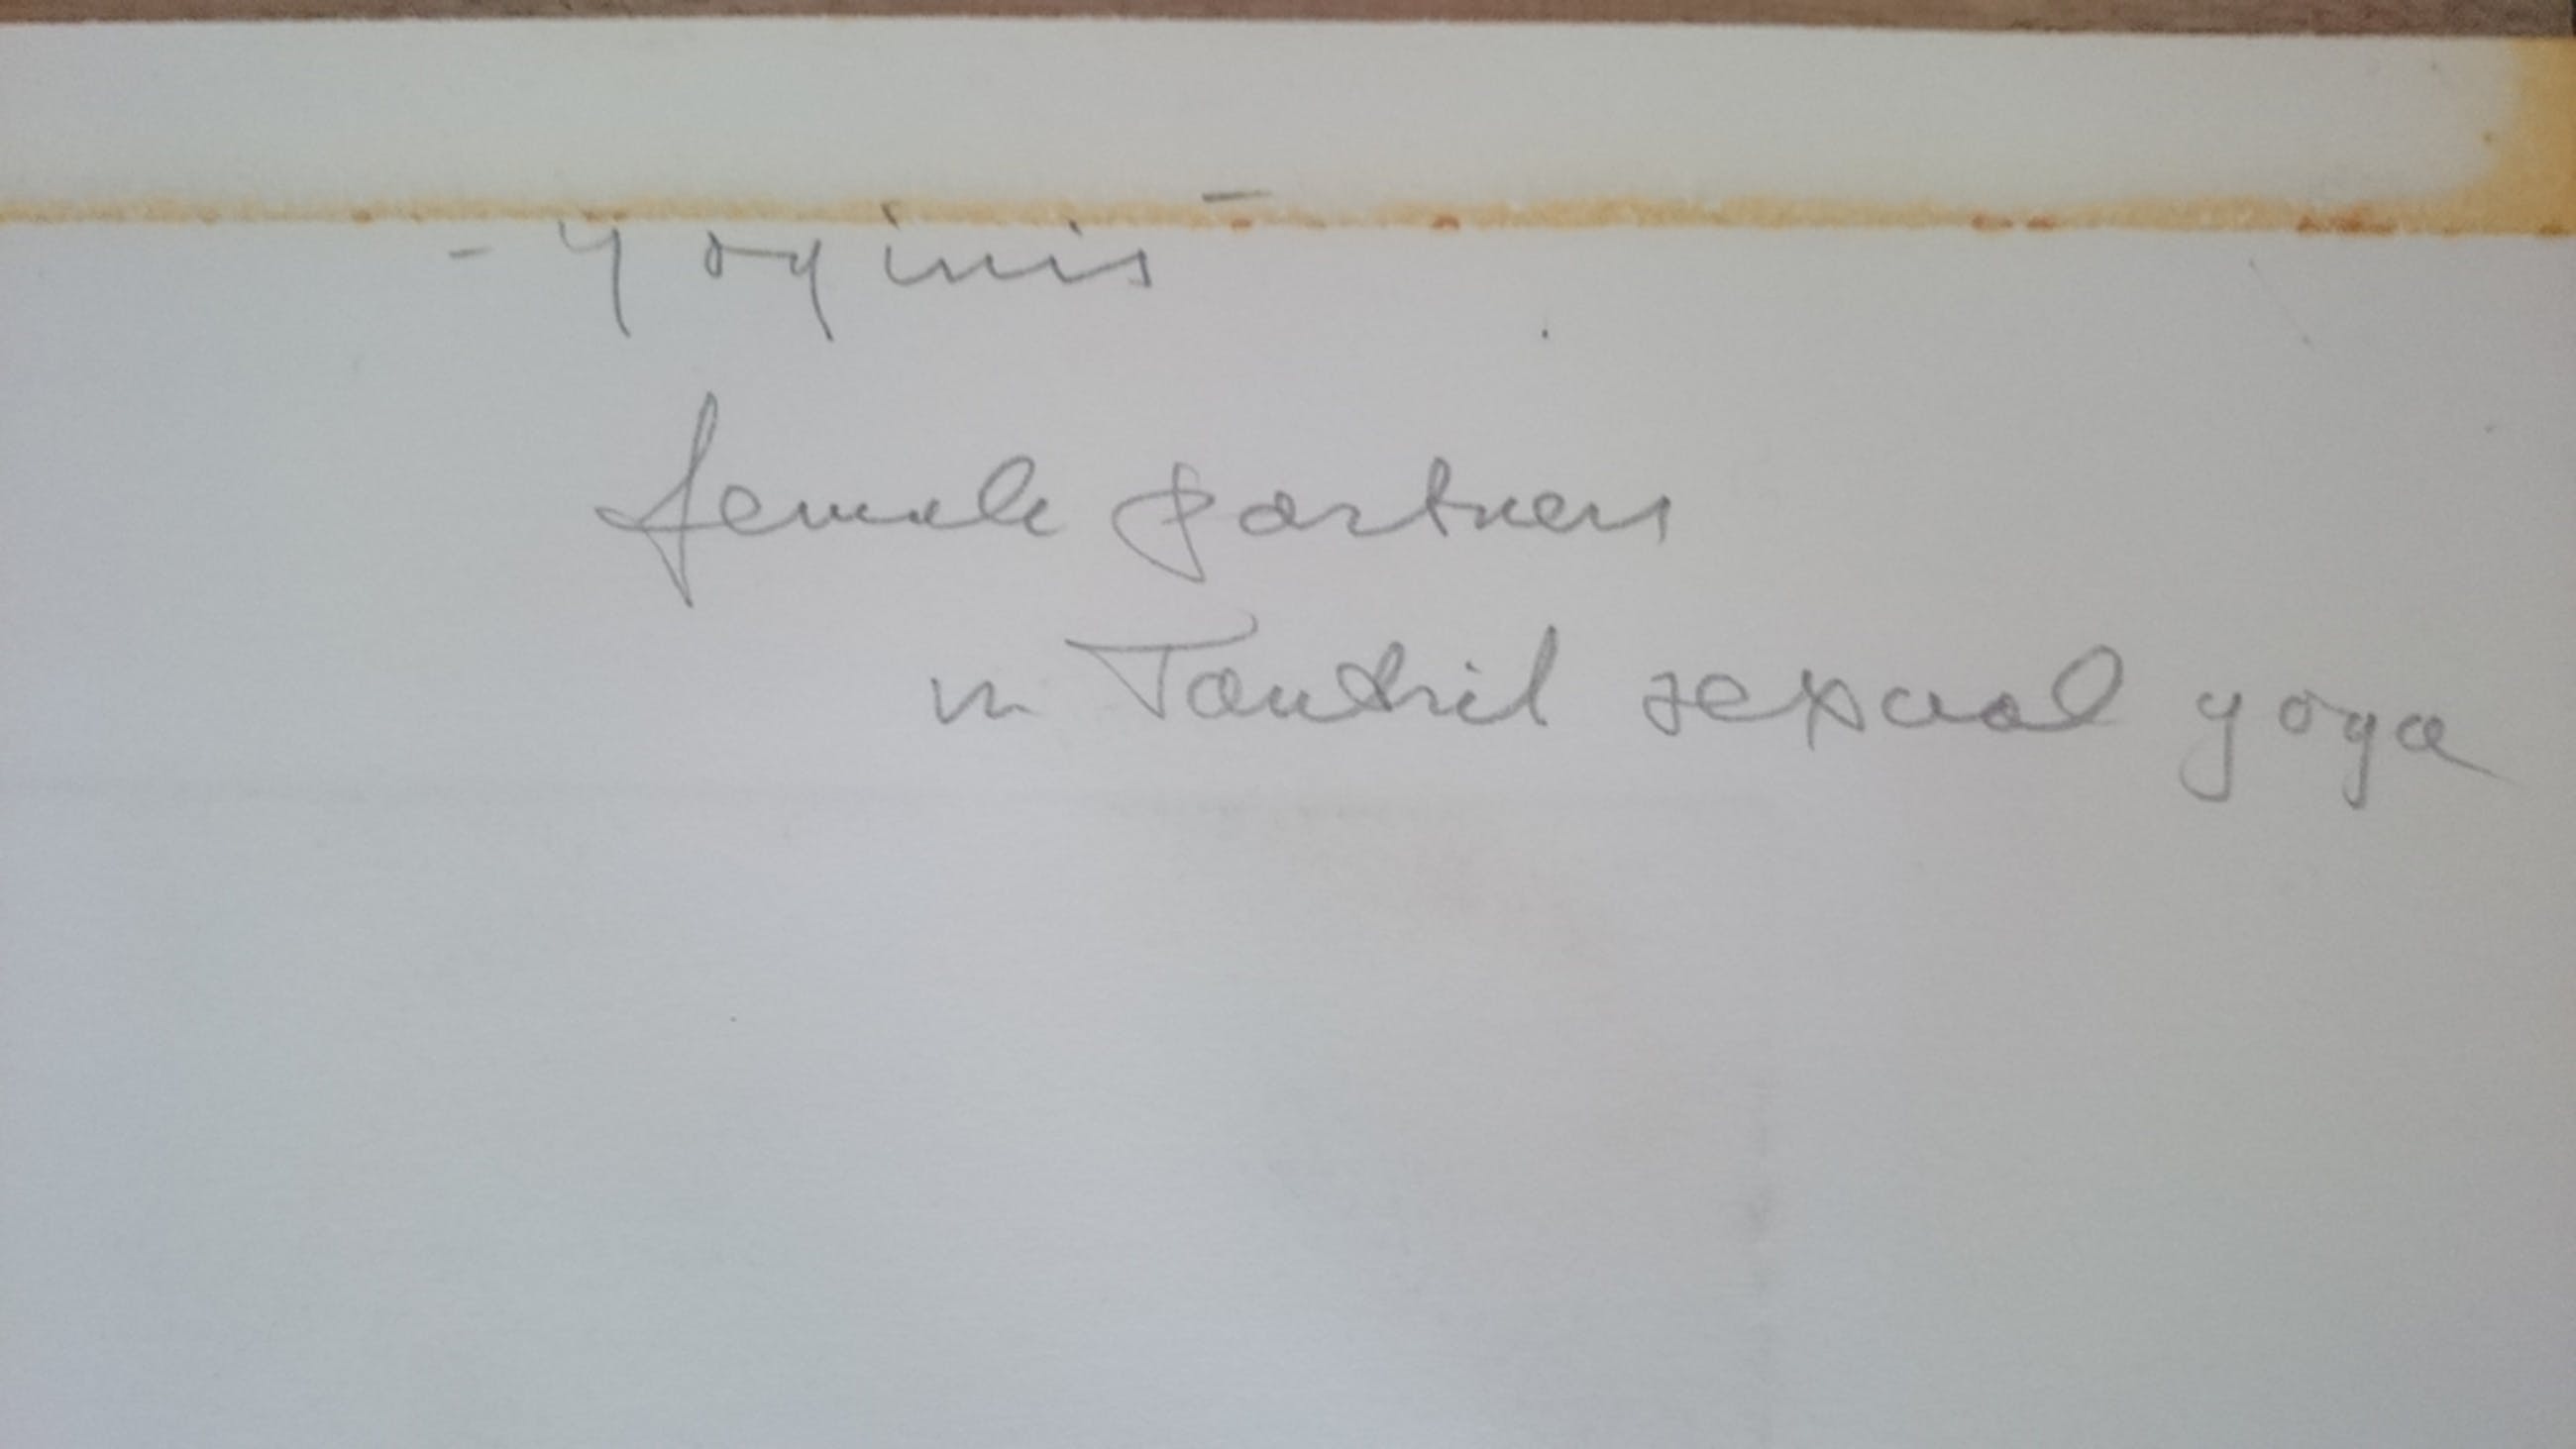 - yoginis -
female partners
in Tantric sexual yoga